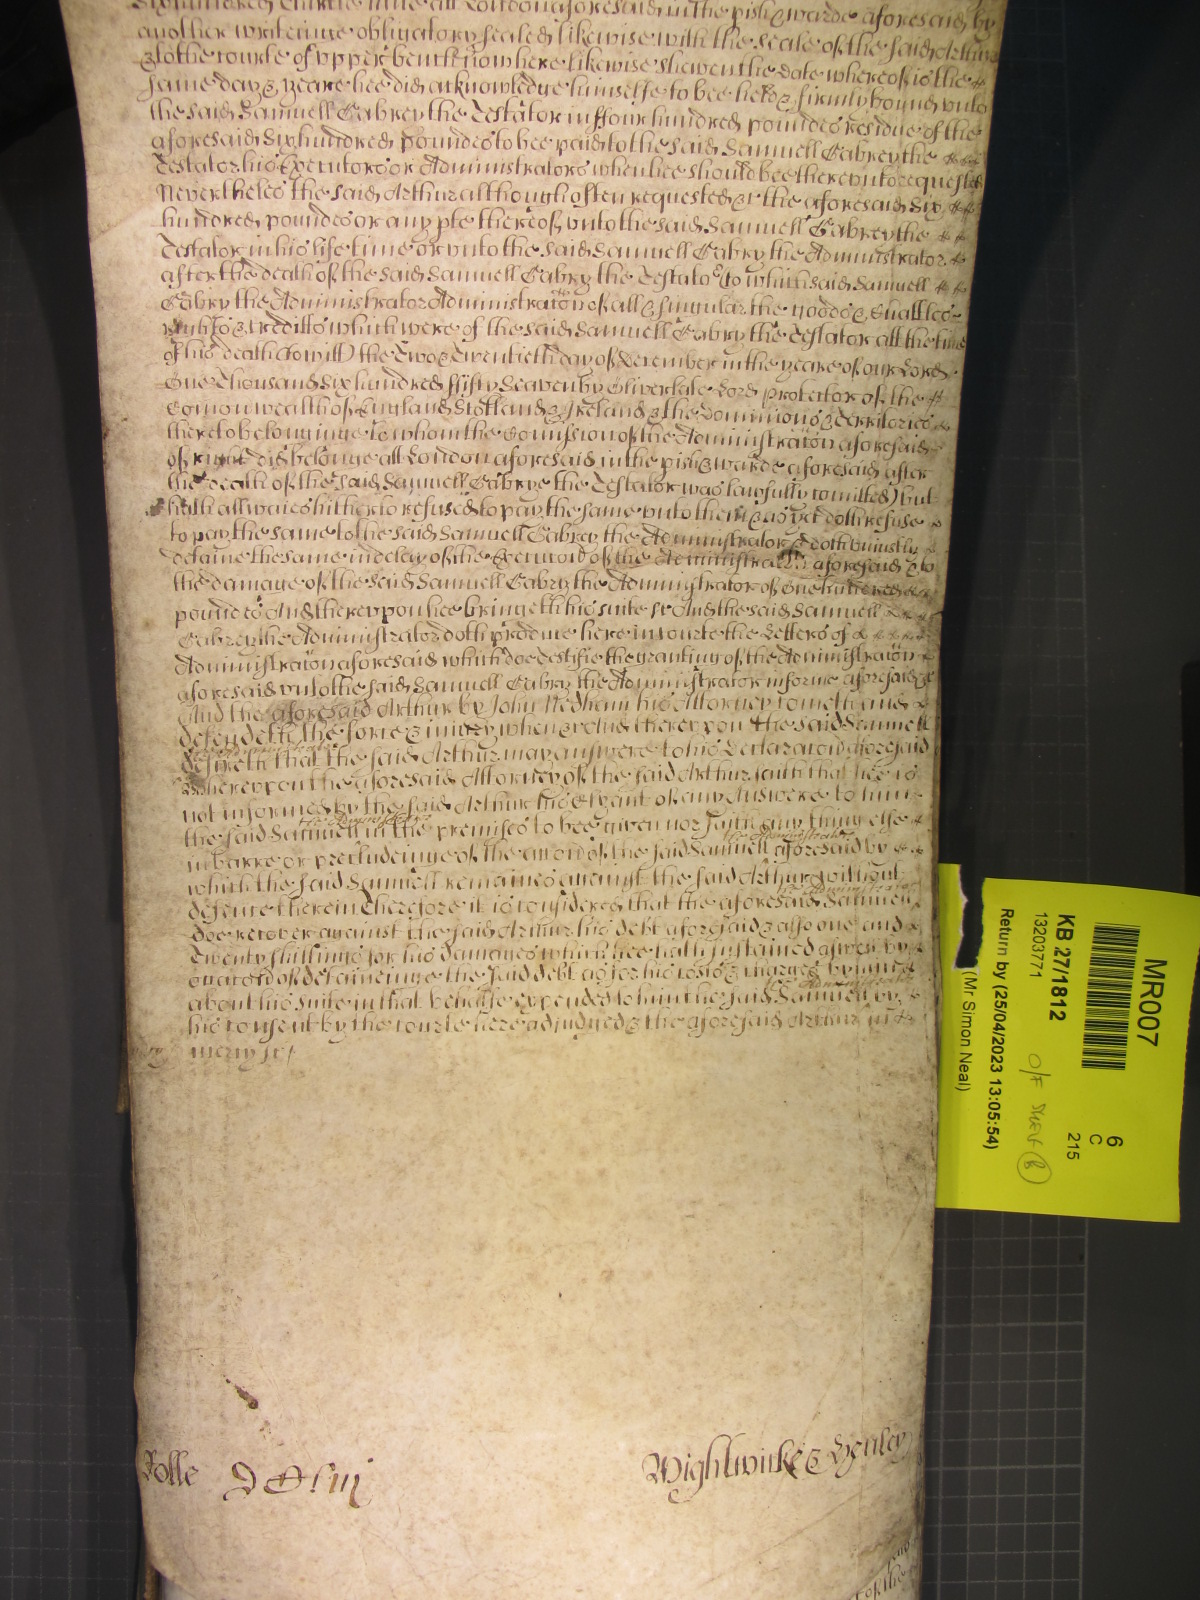 Sixhundred thirtie nine att London aforesaid in the pish & warde aforesaid by
another writeinge obligatory sealed likewise with the seale of the said Arthur
& to the Courte of vpper bench now here likewise shewen the date whereof is the
same day & yeare hee did acknowledge himselfe to bee held & firmly bound vnto
the said Samuell Cabrey the Testator in ffour hundred poundes residue of the
aforesaid Sixhundred poundes to bee paid to the said Samuell Cabrey the
Testator his Executors or Administrators when hee should bee therevnto requested
Nevertheles the said Arthur although often requested &c the aforesaid Six
hundred poundes or any pte thereof vnto the said Samuell Cabrey the
Testator in his life time or vnto the said Samuell Cabry the Administrator
after the death of the said Samuell Cabry the Testator (To which said Samuell
Cabry the Administrator Administracon of all & singular the goods & Chattles
rights & Creditts which were of the said Samuell Cabry the Testator att the time
of his death (to witt) the Two & Twentieth day of December in the yeare of our Lord
One Thousand Sixhundred ffifty Seaven by Oliver late Lord Protector of the
Comonwealth of England Scotland & Ireland & the Dominions & Territories
thereto belonginge to whom the Comission of the Administracon aforesaid
of right did belonge att London aforesaid in the pish & warde aforesaid after
the death of the said Samuell Cabrye the Testator was lawfully comitted) but
hath allwaies hitherto refused to pay the same vnto them & as yet doth refuse
to pay the same to the said Samuell Cabrey the Administrator & doth vniustly
detaine the same in delay of the Execucon of the Administracon aforesaid & to
the damage of the said Samuell Cabry the Administrator of One hundred
poundes And therevpon hee bringeth his suite &c And the said Samuell
Cabrey the Administrator doth produce here in Courte the Letters of
Administracon aforesaid which doe testifie the granting of the Administracon
aforesaid vnto the said Samuell Cabry the Administrator in forme aforesaid &c
And the aforesaid Arthur by John Nedham his Attorney cometh and
defendeth the force & iniury when &c And therevpon the said Samuell
desireth that the said Arthur may answere to his Declaracon aforesaid
Wherevpon the aforesaid Attorney of the said Arthur saith that hee is
not informed by the said Arthur his Clyant of any Answere to him
the Administrator
the said Samuell in the premises to bee given nor saith any thing else
the Administrator
in barre or precludeinge of the accon of the said Samuell aforesaid by
which the said Samuell remaines against the said Arthur without
the Administrator
defence therein Therefore it is considered that the aforesaid Samuell
doe recover against the said Arthur his debt aforesaid & also one and
Twenty shillings for his damages which hee hath sustained aswell by
occacon of detaineinge the said debt as for his costs & charges by him
the Administrator
about his suite in that behalfe expended to him the said Samuell by
his consent by the Courte here adjudged & the aforesaid Arthur in
mercy &c
mercy
Rolle
Wightwicke & Henley
of the
MR007
6
C
215
KB 27/1812
13203771
O/F Shelf B
Return by (25/04/2023 13:05:54)
(Mr Simon Neal)